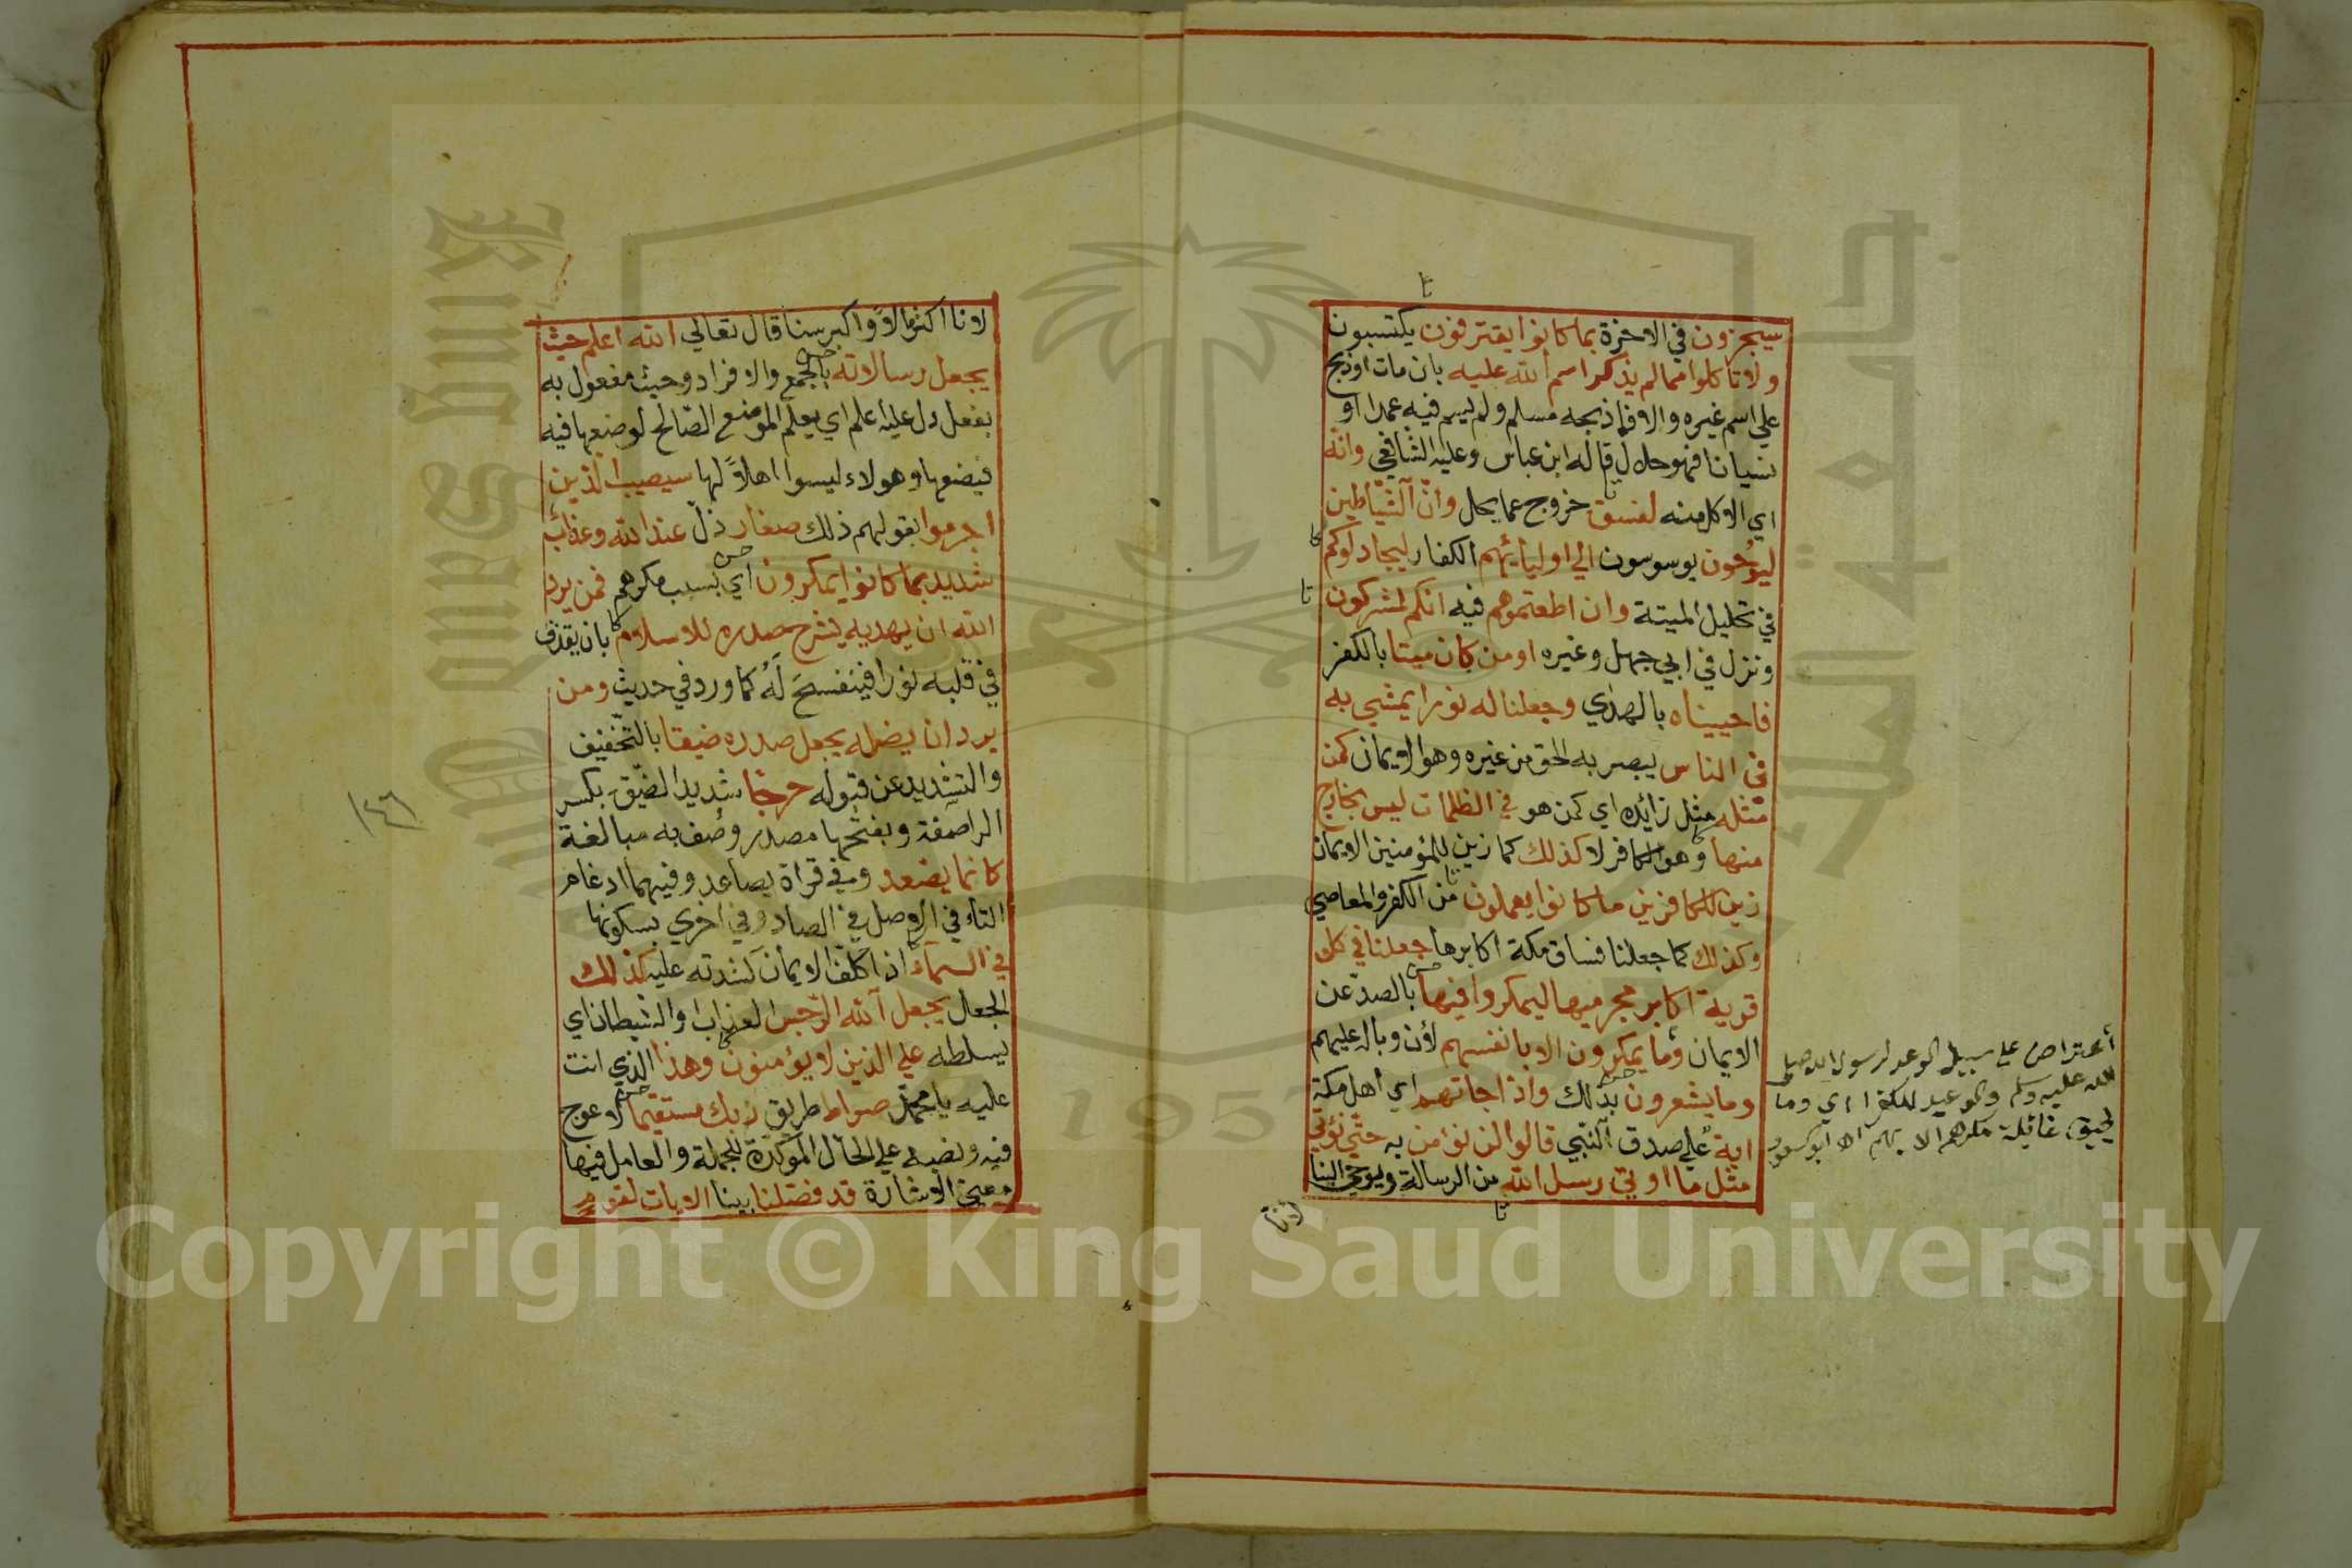 سيجزون في الاخرة بما كانوا يقترفون يكتسبون
ولا تاكلوا مما لم يذكر اسم الله عليه بان مات او ذبح
علي اسم غيره والا فما ذبحه مسلم ولم يسم فيه عمدا او
نسيانا فهو حلال قاله ابن عباس وعليه الشافعي وانه
اي الاكل منه لفسق خروج عما يحل وانّ الشّياطين
ليوحون يوسوسون الي اوليائهم الكفار ليجادلوكم
في تحليل الميتة وان اطعتموهم فيه انكم لمشركون
ونزل في ابي جهل وغيره اومن كان ميتا بالكفر
فاحييناه بالهدي وجعلنا له نورا يمشي به
في الناس يبصر به الحق من غيره وهو الايمان كمن
مّثله مثل زائده اي كمن هو في الظلمات ليس بخارج
منها وهو الكافر لا كذلك كما زين للمؤمنين الايمان
زين للكافرين ما كانوا يعملون من الكفر والمعاصي
وكذلك كما جعلنا فساق مكة اكابرها جعلنا في كل
قرية اكابر مجرميها ليمكروا فيها بالصدّ عن
الايمان وما يمكرون الا بانفسهم لان وباله عليهم
وما يشعرون بذلك واذا جاتهم اي اهل مكة
اية علي صدق النّبي قالوا لن نؤمن به حتّي نؤتي
مثل ما اوتي رسل الله من الرسالة ويوحي الينا
لانا
أعتراض علي سبيل الوعد لرسول الله صلي
الله عليه وسلم والوعيد للكفرا اي وما
يحيق غائلة مكرهم الا بهم اه ابو السعود
لانا اكثر مالاً واكبر سنا قال تعالي الله اعلم حيث
يجعل رسالاته بالجمع والافراد وحيث مفعول به
بفعل دل عليه اعلم اي يعلم الموضع الصّالح لوضعها فيه
فيضعها وهولاء ليسوا اهلاً لها سيصيب الذين
اجرموا بقولهم ذلك صغار ذلّ عند الله وعذاب
شديد بما كانوا يمكرون اي بسبب مكرهم فمن يرد
الله ان يهديه يشرح صدره للاسلام بان يقذف
في قلبه نورا فينفسح له كما ورد في حديث ومن
يرد ان يضله يجعل صدره ضيقا بالتّخفيف
والتشديد عن قبوله حرجا شديد الضّيق بكسر
الرا صفة وبفتحها مصدر وصف به مبالغة
كانما يصّعد وفي قراة يصاعد وفيهما ادغام
التاء في الاصل في الصاد وفي اخري بسكونها
في السماء اذا كلف الايمان لشدته عليه كذلك
الجعل يجعل الله الرّجس العذاب والشيطان اي
يسلطه علي الذين لا يؤمنون وهذا الذي انت
عليه يا محمّد صراط طريق ربك مستقيما لا عوج
فيه ونصبه علي الحال المؤكدة للجملة والعامل فيها
معني الاشارة قد فصّلنا بينا الايات لقوم
١٤٦
1957
Copyright © King Saud University